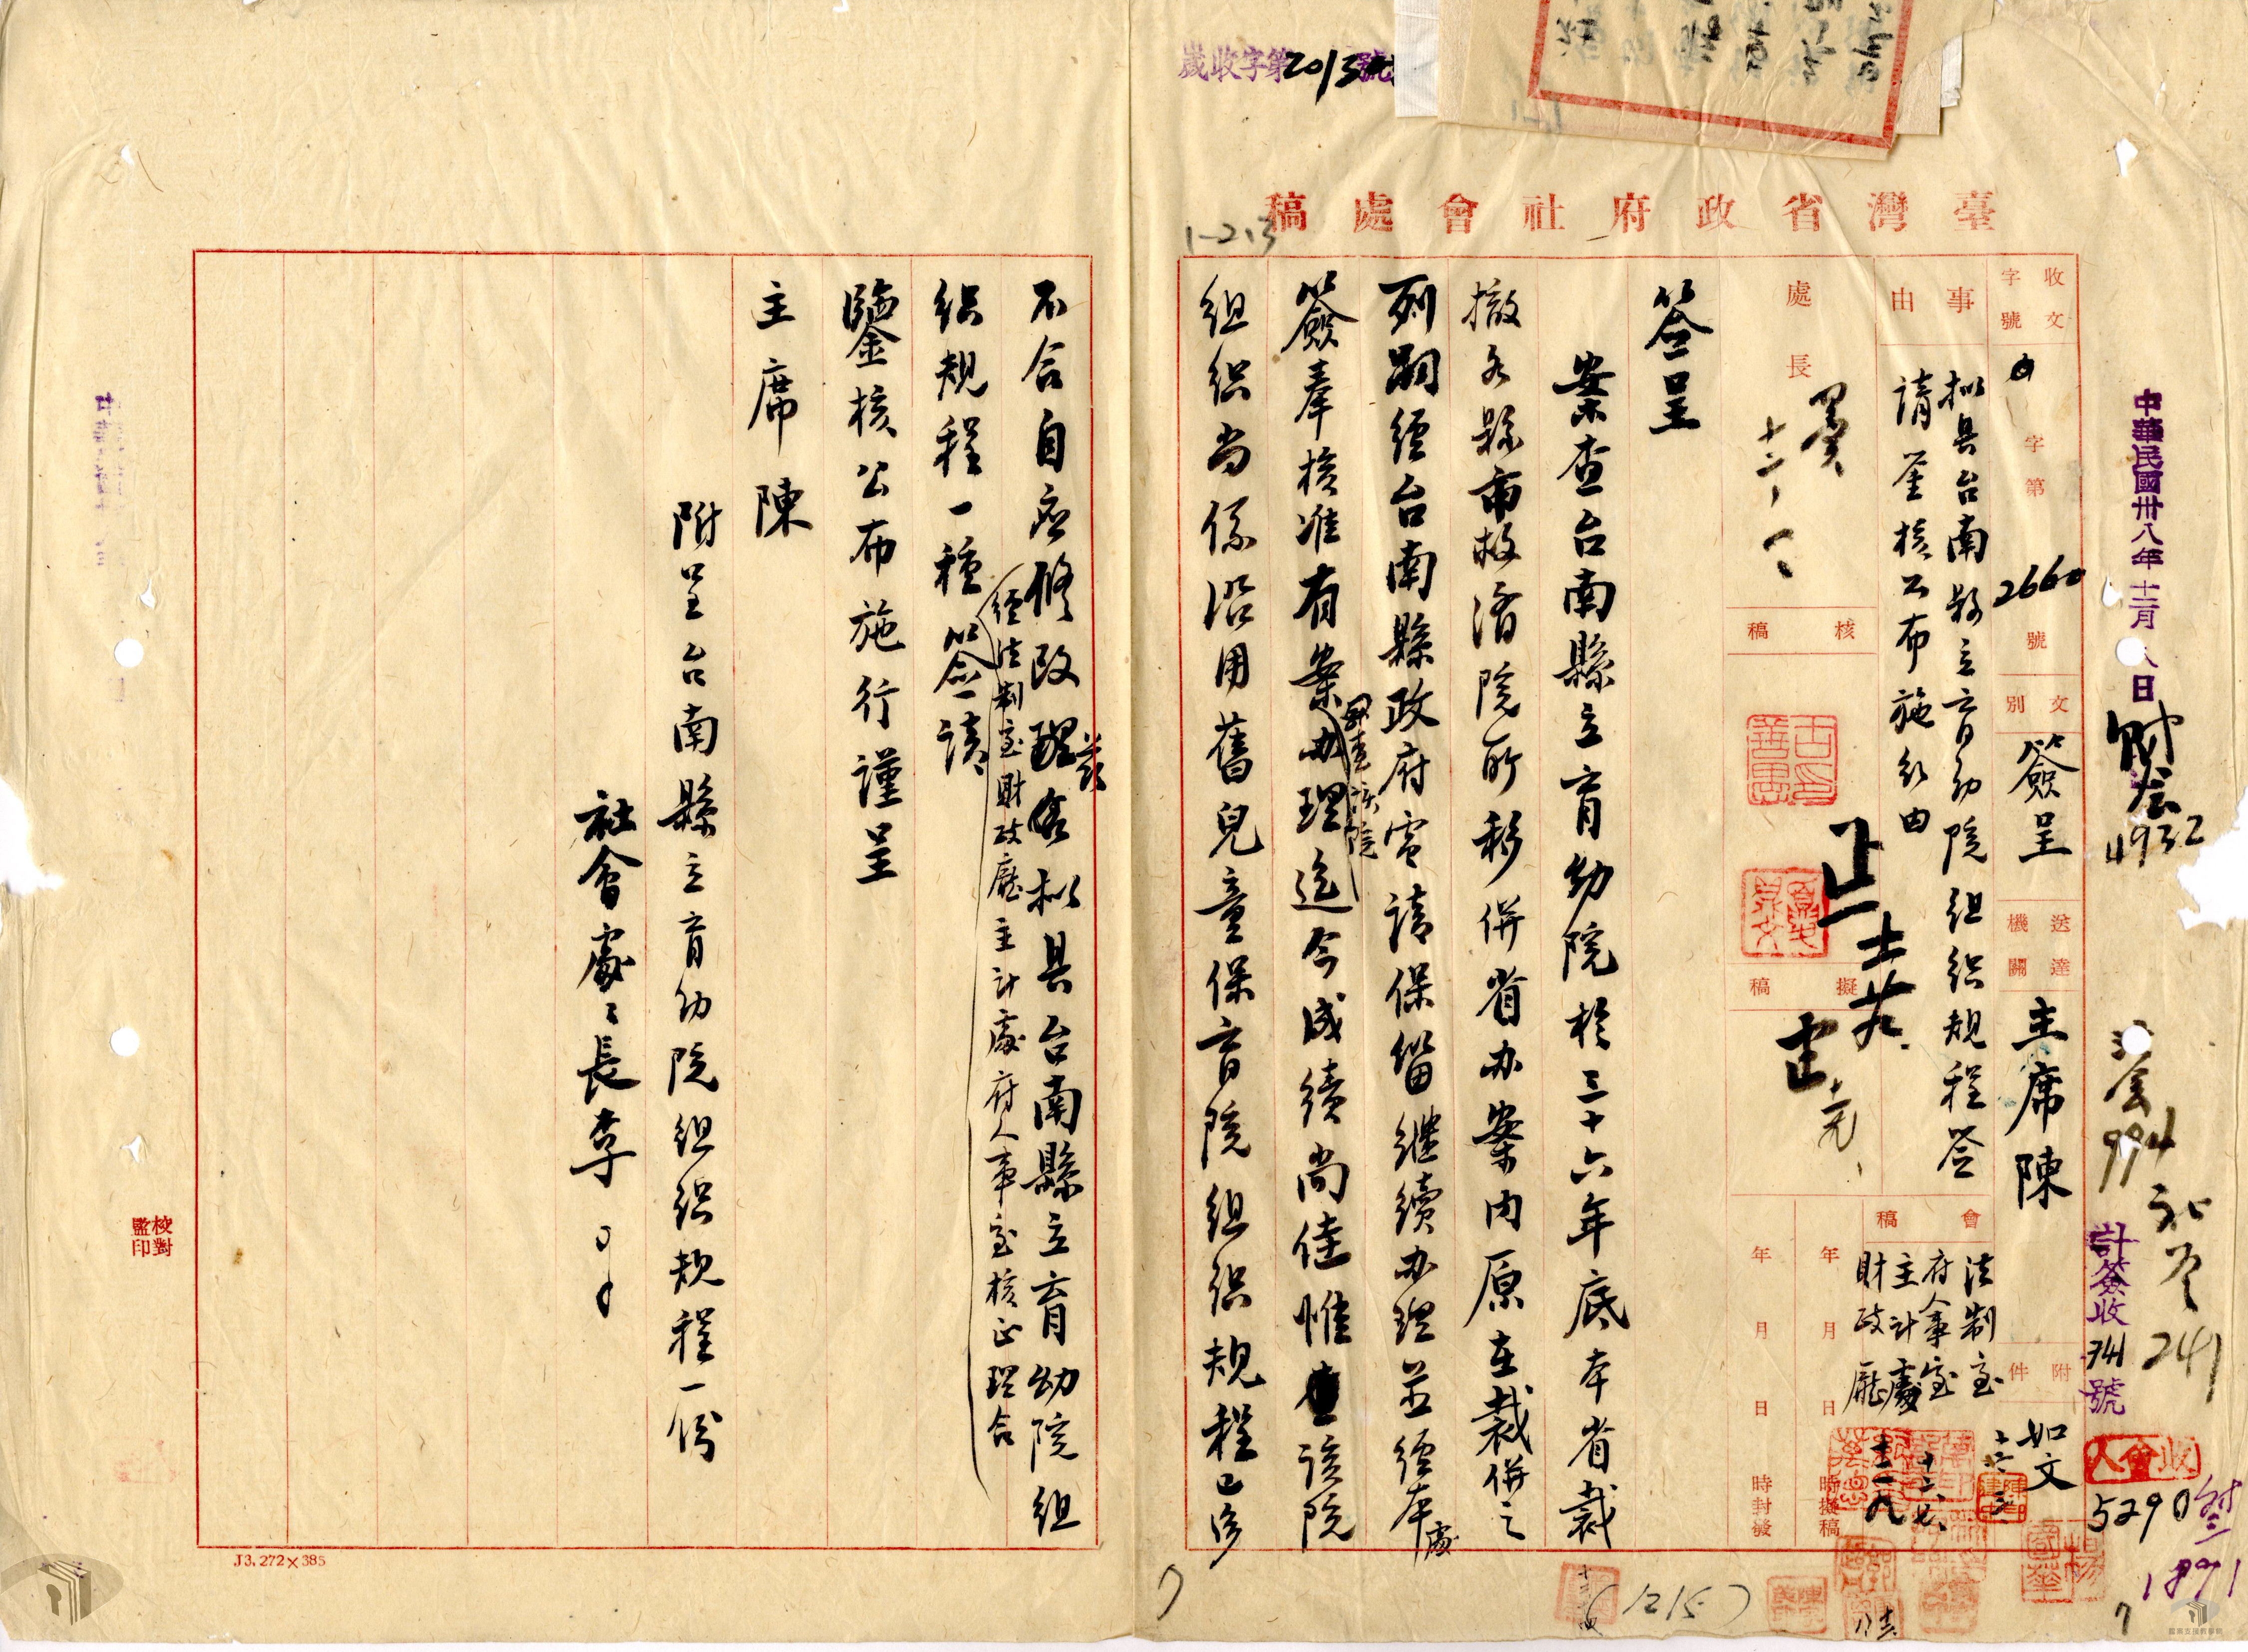 歲收字第2013號
臺灣省政府社會處稿
1-213
中華民國卅八年十二月八日
財簽4932
994
241
計簽收741號
收會人
5290
1891
收文字號
字第2660號
文別
簽呈
送達機關
主席陳
附件
如文
事由
拟具台南縣立育幼院組织規程签
請鉴核公布施行由
會稿
法制室
府人事室
主計處
財政廳
處長
核稿
擬稿
年月日時擬稿
年月日時封發
签呈
案查台南縣立育幼院於三十六年底本省裁
撤各縣市救濟院所移併省办案内原在裁併之
列嗣經台南縣政府電請保留继續办理並經本處
簽奉核准有案办理迄今成績尚佳惟查該院
組织尚係沿用舊兒童保育院組织規程已多
不合自应修改兹拟具台南縣立育幼院組
經法制室財政廳主計處府人事室核正理合
织規程一種签請
鑒核公布施行謹呈
主席陳
附呈台南縣立育幼院組织規程一份
社會處處長李
校對
監印
J3.272×385
(1215)